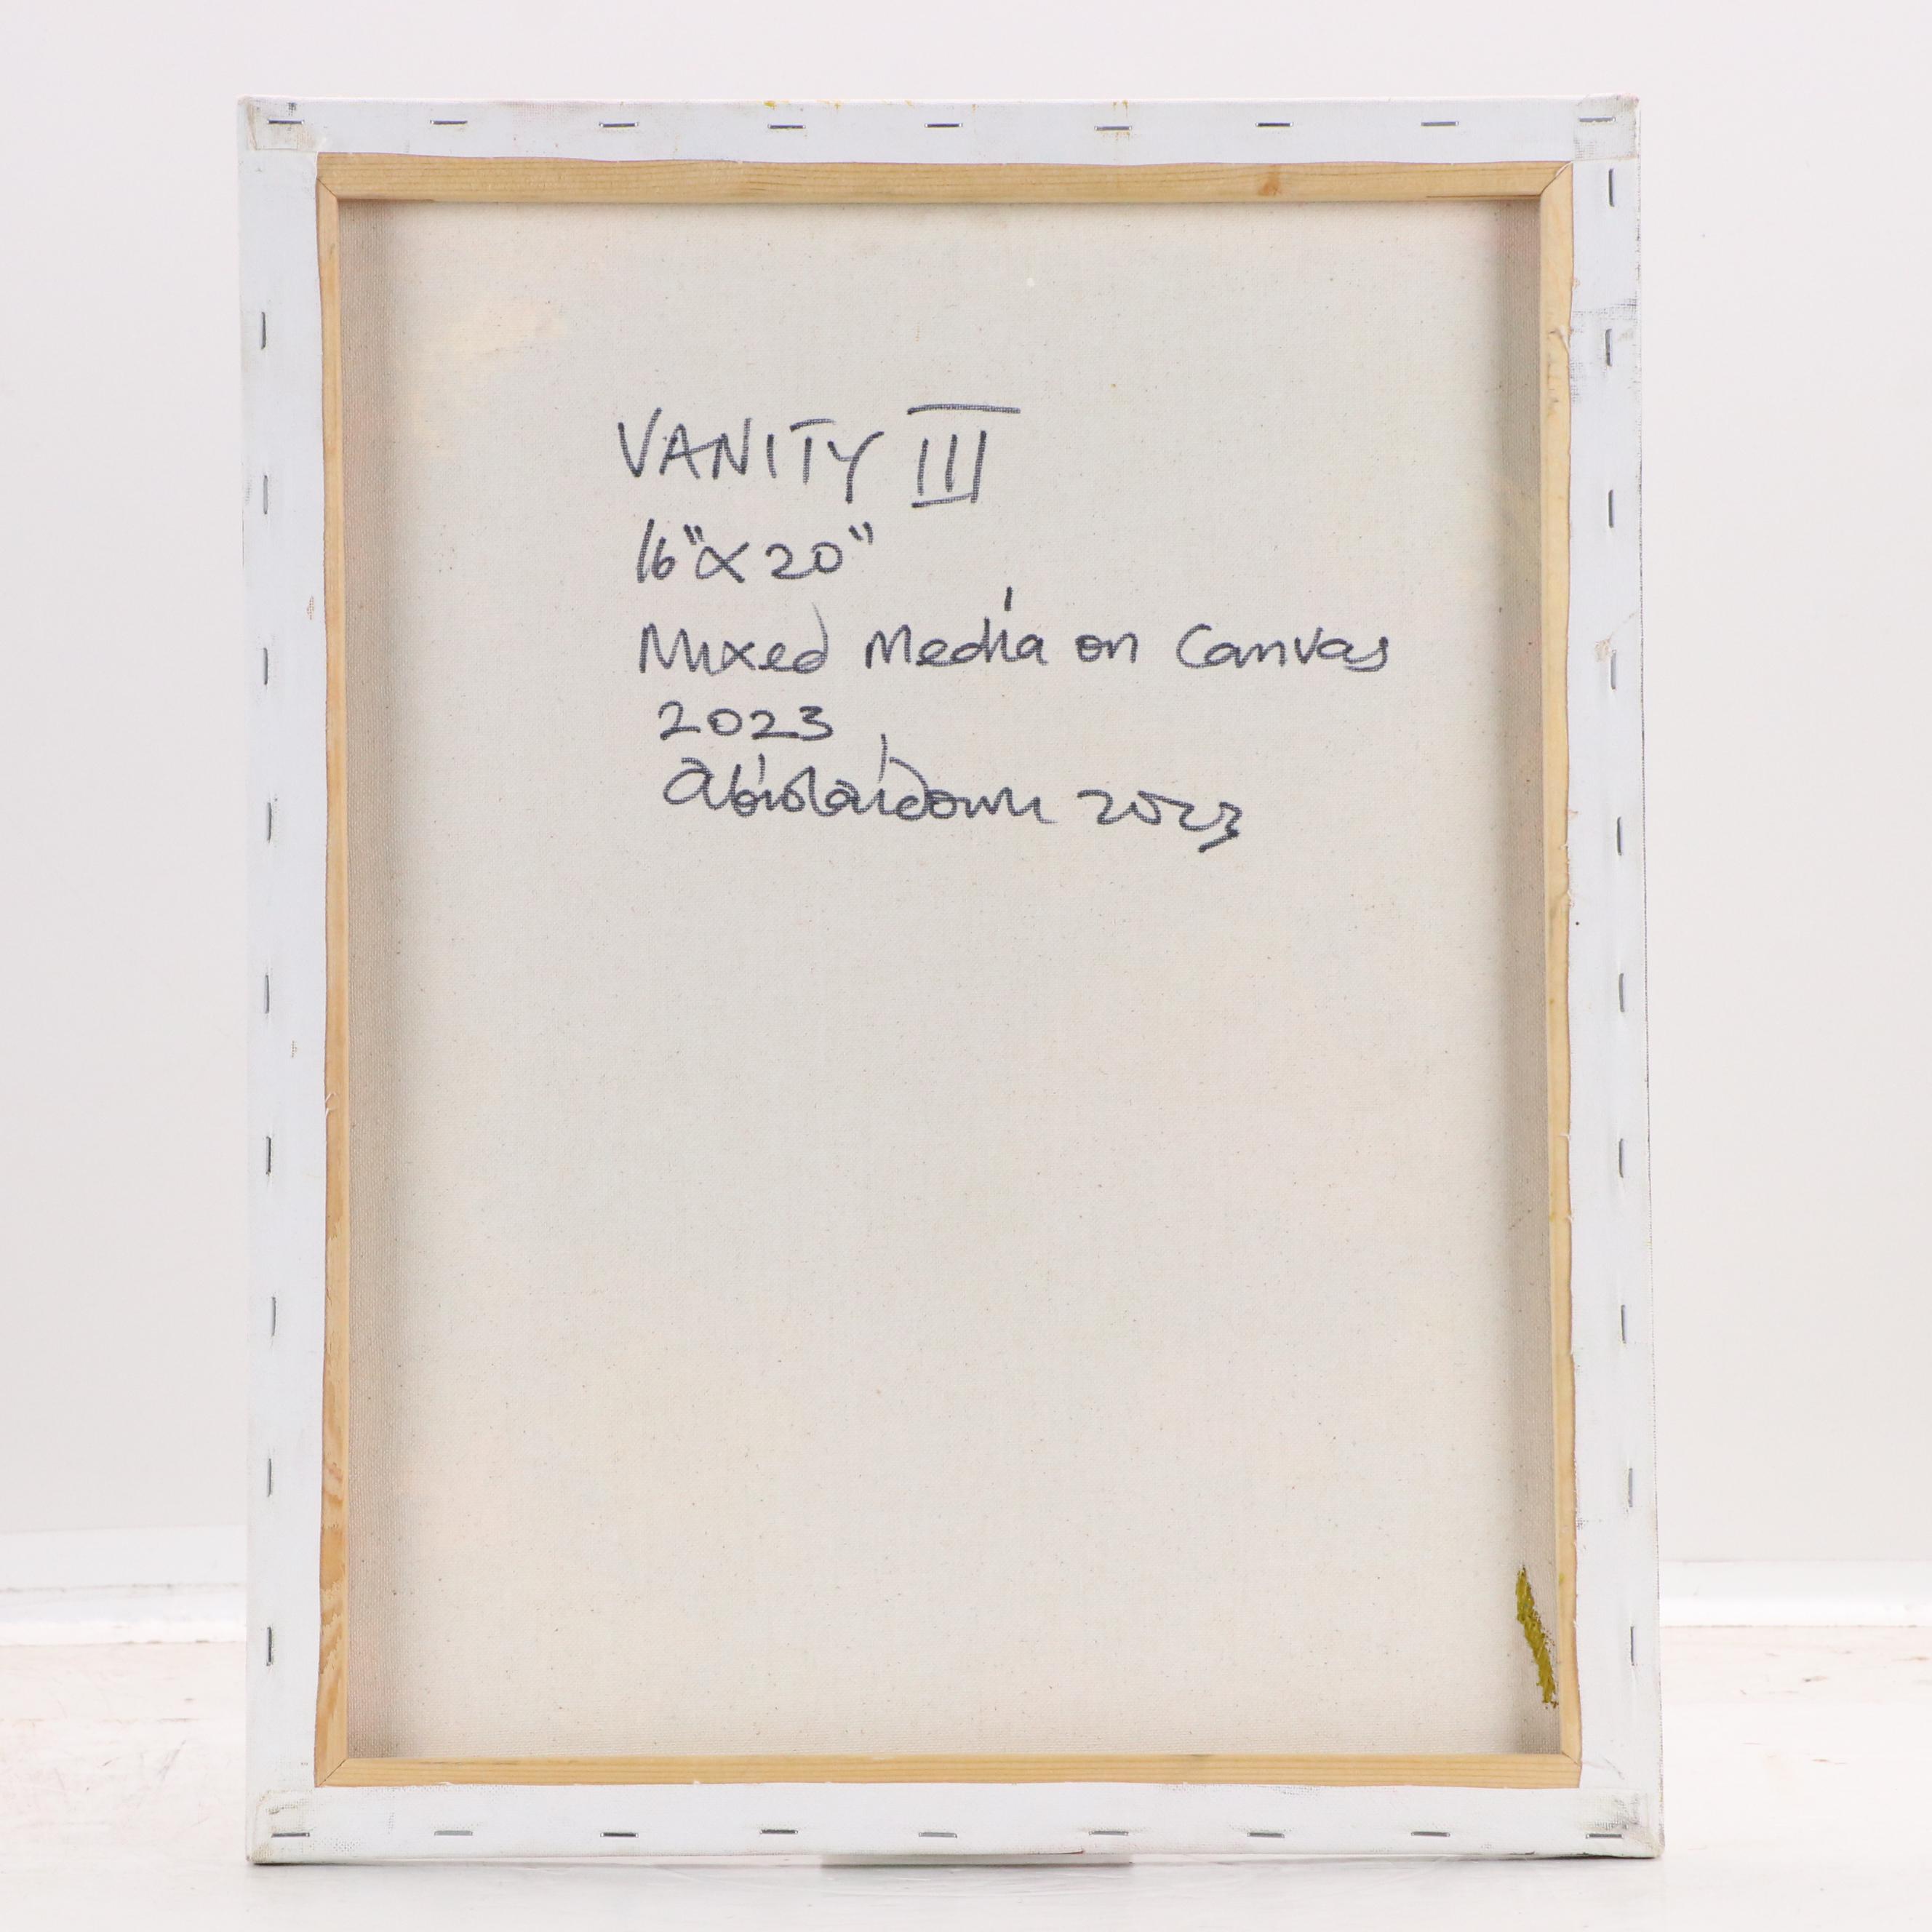 VANITY III
16"x20"
Mixed Media on Canvas
2023
abiolaidowu 2023